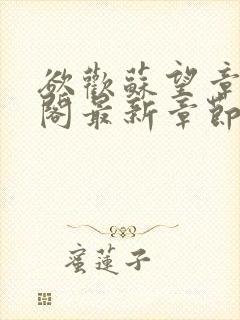 欲歡蘇望章
閣最新章節
蜜蓮子